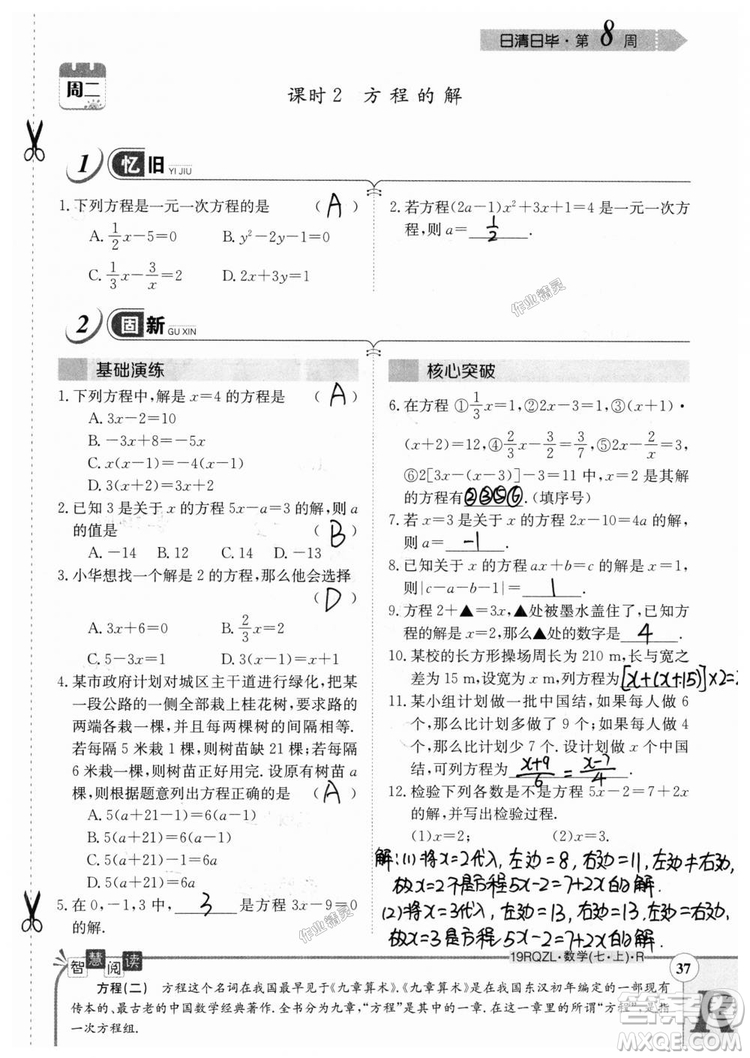 日清日毕·第8周
周二
课时2 方程的解
1 忆旧 YI JIU
1. 下列方程是一元一次方程的是 (A)
A. 1/3x-5=0 B. y²-2y=0
C. 1/3x-3/x=2 D. 2x+3y=1
2. 若方程(2a-1)x²+3x+1=4是一元一次方
程,则a=1/2.
2 固新 GU XIN
基础演练
1. 下列方程中,解是x=4的方程是 (A)
A. 3x-2=10
B. 3x+8=5x
C. x(x-1)=4(x-1)
D. 3(x+2)=3x+2
2. 已知3是关于x的方程5x-a=3的解,则a
的值是 (B)
A. -14 B. 12 C. 14 D. -13
3. 小华想找一个解是2的方程,他会选择
(D)
A. 3x+6=0 B. 2/3x=2
C. 5-3x=1 D. 3(x-1)=x+1
4. 某市政府计划对城区主干道进行绿化,把某
一段公路的一侧全部栽上桂花树,要求路的
两端各栽一棵,每两棵树的间隔相等.
若每隔5米栽一棵,则树苗缺21棵;若每隔
6米栽一棵,则树苗正好用完.设原有树苗a
棵,则根据题意列出方程正确的是 (A)
A. 5(a+21-1)=6(a-1)
B. 5(a+21)=6(a-1)
C. 5(a+21)-1=6a
D. 5(a+21)=6a
5. 在0,-1,3中,3是方程3x-9=0
的解.
核心突破
6. 在方程①1/3x=1,②2x-6=0,③(x-1)·
(x+2)=12,④2/3x=3/2,⑤x/3-1=0,
⑥2[3x-(x-3)]-3=11中,x=2是其解
的方程有②③⑤⑥.(填序号)
7. 若x=3是关于x的方程2x-10=4a的解,
则a=-1.
8. 已知x=1是关于x的方程ax+b=c的解,
则|c-a-b+1|=1.
9. 方程2+▲=3x,▲处被墨水盖住了,已知方
程的解是x=2,那么▲处的数字是4.
10. 某校的长方形操场周长为210 m,长与宽之
差为15 m,设宽为x m,列方程为[x+(x+15)]×2=2
11. 某小组计划做一批中国结,如果每人做6
个,那么比计划多做了9个;如果每人做4
个,那么比计划少7个.设计划做x个中国
结,可列方程为(x+9)/6=(x-7)/4.
12. 检验下列各数是不是方程5x-2=7+2x的
解,并写出检验过程.
(1)x=2; (2)x=3.
解:(1)将x=2代入,左边=8,右边=11,左边≠右边,
故x=2不是方程5x-2=7+2x的解.
(2)将x=3代入,左边=13,右边=13,左边=右边,
故x=3是方程5x-2=7+2x的解.
19RQZL·数学(七·上)·R
37
R
智慧阅读
方程(二) 方程这个名词在我国最早见于《九章算术》.《九章算术》是在我国东汉初年编定的一部现有
传本的、最古老的中国数学经典著作.全书共分九章,“方程”是其中的一章.在这一章里的所谓“方程”是指
一次方程组.
作业精灵
作业精灵
MXQE.COM